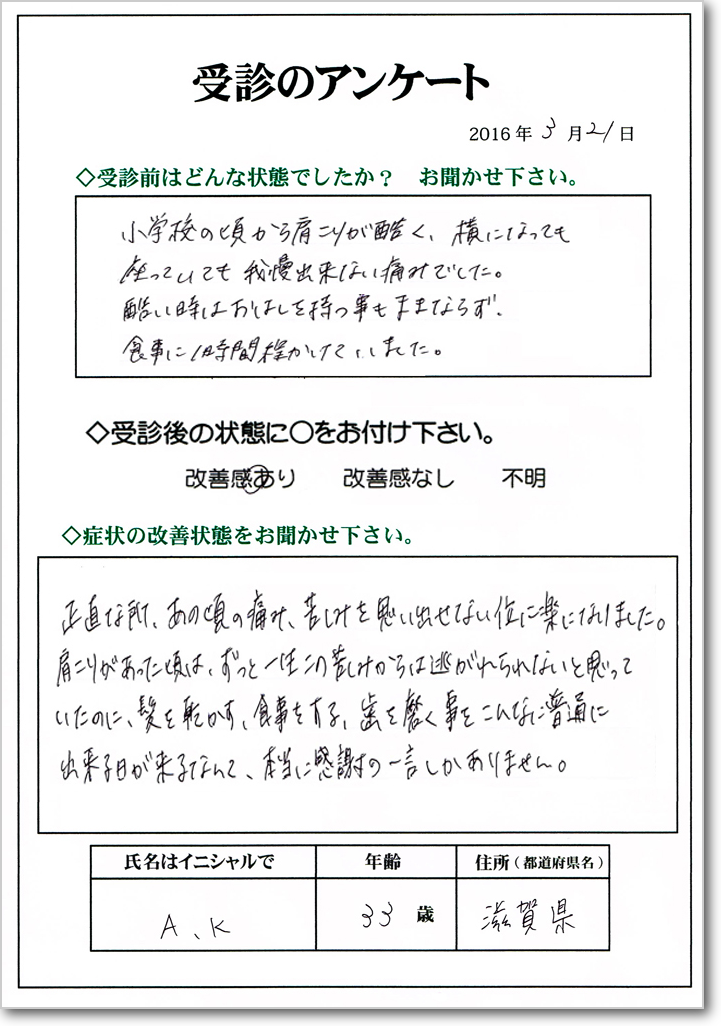 受診のアンケート
2016年 3月21日
◇受診前はどんな状態でしたか？ お聞かせ下さい。
小学校の頃から肩こりが酷く、横になっても
座っていても我慢出来ない痛みでした。
酷い時はおはしを持つ事もままならず、
食事に1時間程かけていました。
◇受診後の状態に○をお付け下さい。
改善感あり 改善感なし 不明
◇症状の改善状態をお聞かせ下さい。
正直な所、あの頃の痛み、苦しみを思い出せない位に楽になりました。
肩こりがあった頃は、ずっと一生この苦しみからは逃がれられないと思って
いたのに、髪を乾かす、食事をする、歯を磨く事をこんなに普通に
出来る日が来るなんて、本当に感謝の一言しかありません。
氏名はイニシャルで 年齢 住所（都道府県名）
A、K 33 歳 滋賀県